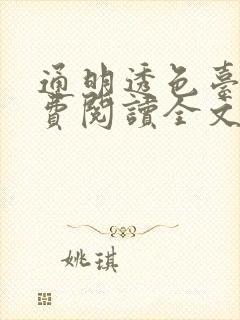 通明透色臺
費閱讀全文
姚琪